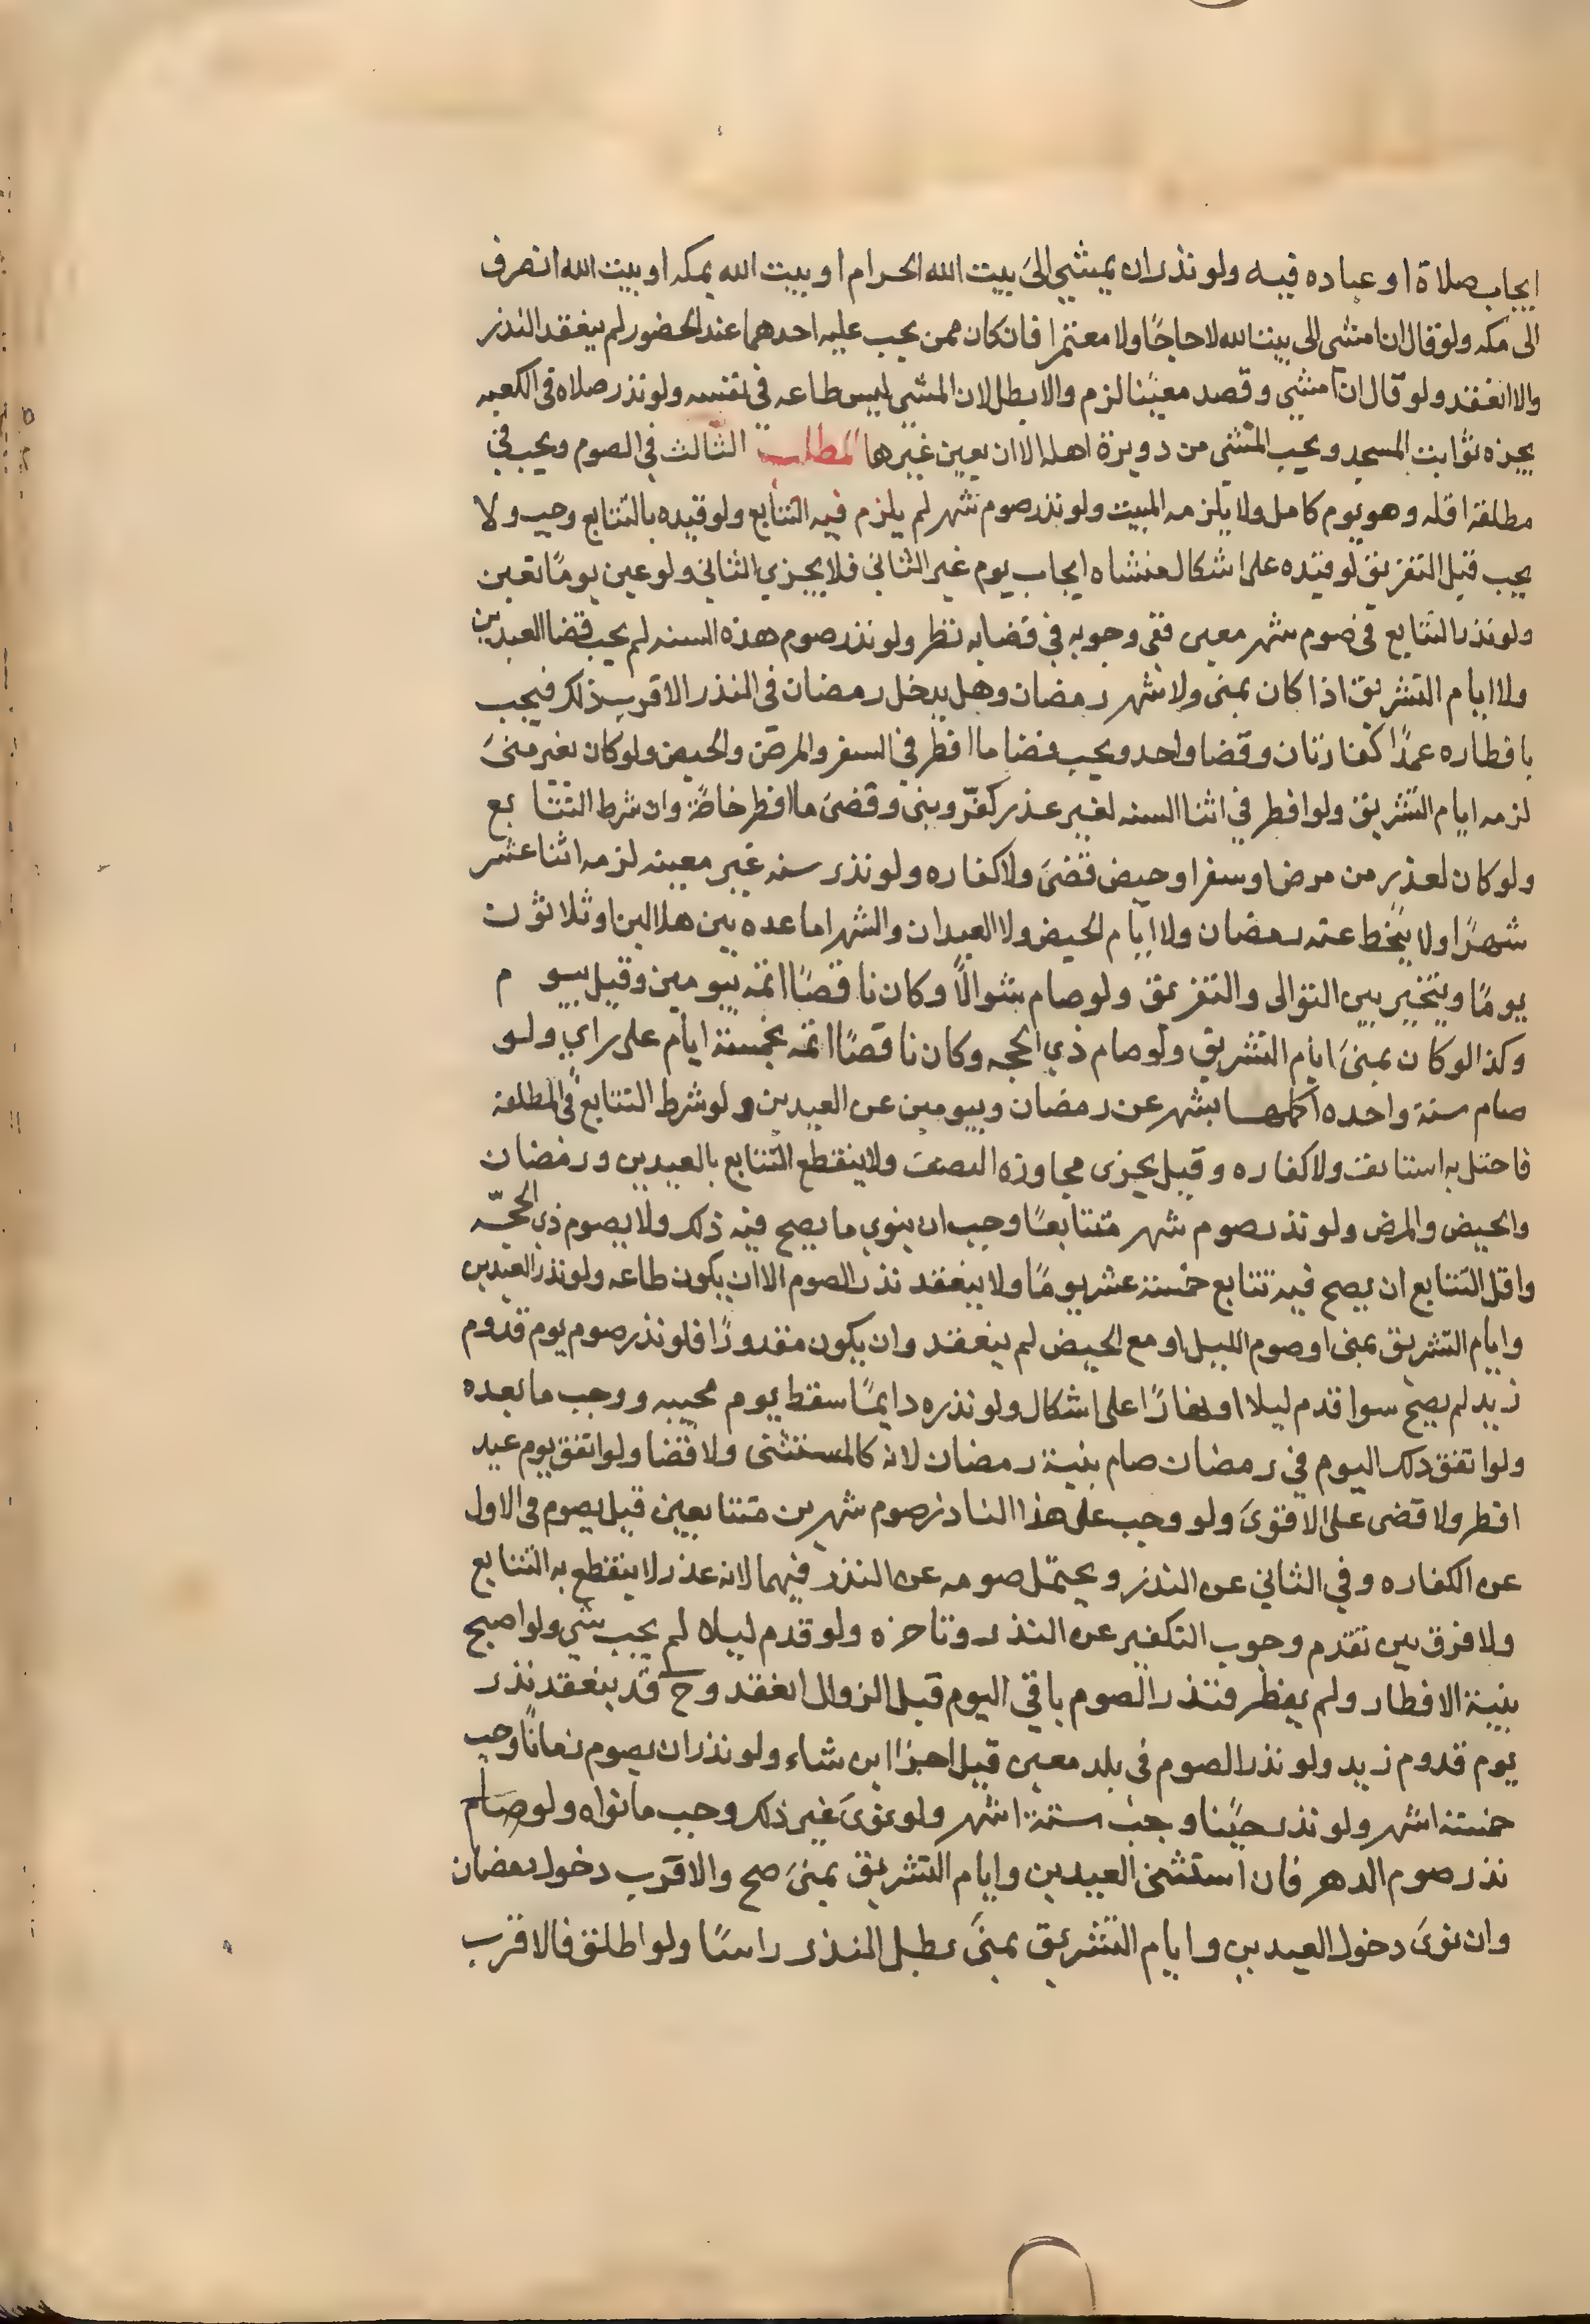 ايجاب صلاة او عباده فيه ولو نذر ان يمشي الى بيت الله الحرام او بيت الله بمكه او بيت الله انصرف
الى مكه ولو قال ان امشى الى بيت الله لا حاجًا ولا معتمرا فان كان ممن يجب عليه احدهما عند الحضور لم ينعقد النذر
والا انعقد ولو قال ان امشي وقصد معينًا لزم والا بطل لان المشي ليس طاعه في نفسه ولو نذر صلاه في الكعبه
يجزه نوابت المسجد ويجب المشى من دويرة اهله الا ان يعين غيرها المطلب الثالث في الصوم ويجب في
مطلقه اقله وهو يوم كامل ولا يلزمه المبيت ولو نذر صوم شهر لم يلزم فيه التتابع ولو قيده بالتتابع وجب ولا
يجب قبل التفريق لو قيده على اشكال منشاه ايجاب يوم غير الثاني فلا يجزي الثاني ولو عين يومًا تعين
ولو نذر التتابع في صوم شهر معين ففي وجوبه في قضايه نظر ولو نذر صوم هذه السنه لم يجب قضا العيدين
ولا ايام التشريق اذا كان بمنى ولا شهر رمضان وهل يدخل رمضان في النذر الاقرب ذلك فيجب
بافطاره عمدًا كفارتان وقضا واحد ويجب قضا ما افطر في السفر والمرض والحيض ولو كان بغير منىَ
لزمه ايام التشريق ولو افطر في اثنا السنه لغير عذر كفّر وبنى وقضىَ ما افطر خاصّة وان شرط التتابع
ولو كان لعذر من مرض او سفر او حيض قضىَ ولا كفاره ولو نذر سنه غير معينه لزمه اثنا عشر
شهرًا ولا ينحط عنه رمضان ولا ايام الحيض ولا العيدان والشهر اما عده بين هلالين او ثلاثون
يومًا ويتخير بين التوالى والتفريق ولو صام شوالًا وكان ناقصًا اتمه بيومين وقيل بيوم
وكذا لو كان بمنىَ ايام التشريق ولو صام ذي الحجه وكان ناقصًا اتمه بخمسة ايام على راي ولو
صام سنة واحده اكملها بشهر عن رمضان وبيومين عن العيدين ولو شرط التتابع في المطلقة
فاختل به استانف ولا كفاره وقيل يجزى مجاوزه النصف ولا ينقطع التتابع بالعيدين ورمضان
والحيض والمرض ولو نذر صوم شهر متتابعًا وجب ان ينوي ما يصح فيه ذلك ولا يصوم ذي الحجّه
واقل التتابع ان يصح فيه تتابع خمسة عشر يومًا ولا ينعقد نذر الصوم الا ان يكون طاعه ولو نذر العيدين
وايام التشريق بمنى او صوم الليل او مع الحيض لم ينعقد وان يكون مقدورًا فلو نذر صوم يوم قدوم
زيد لم يصح سوا قدم ليلا او نهارًا على اشكال ولو نذره دايمًا سقط يوم مجيبه ووجب ما بعده
ولو اتفق ذلك اليوم في رمضان صام بنية رمضان لانه كالمستثنى ولا قضا ولو اتفق يوم عيد
افطر ولا قضى على الاقوىَ ولو وجب على هذا الناذر صوم شهرين متتابعين قيل يصوم في الاول
عن الكفاره وفي الثاني عن النذر ويحتمل صومه عن النذر فيهما لانه عذر لا ينقطع به التتابع
ولا فرق بين تقدم وجوب التكفير عن النذر وتاخره ولو قدم ليلا لم يجب شي ولو اصبح
بنية الافطار ولم يفطر فنذر الصوم باقي اليوم قبل الزوال انعقد وح قد ينعقد نذر
يوم قدوم زيد ولو نذر الصوم في بلد معين قيل اجزا اين شاء ولو نذر ان يصوم زمانًا وجب
خمسة اشهر ولو نذر حينًا وجب ستة اشهر ولو نوىَ غير ذلك وجب ما نواه ولو صام
نذر صوم الدهر فان استثنى العيدين وايام التشريق بمنىَ صح والاقرب دخول رمضان
وان نوىَ دخول العيدين وايام التشريق بمنىَ بطل النذر راسًا ولو اطلق فالاقرب